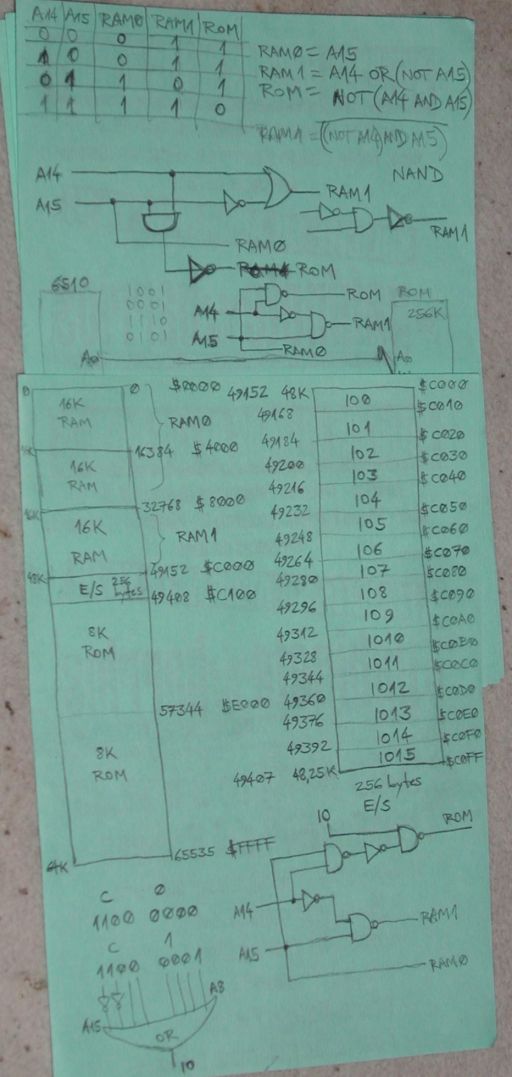 A14 A15 RAM0 RAM1 ROM
0 0 0 1 1
1 0 0 1 1
0 1 1 0 1
1 1 1 1 0
RAM0 = A15
RAM1 = A14 OR (NOT A15)
ROM = NOT (A14 AND A15)
RAM1 = (NOT A14) AND A15)
NAND
A14
A15
RAM1
RAM1
RAM0
ROM
6510
1001
0001
1110
0101
A14
A15
ROM
RAM1
RAM0
ROM
256K
A0
A0
0
16K
RAM
0 $0000
RAM0
16384 $4000
16K
RAM
32768 $8000
16K
RAM
RAM1
48K
49152 $C000
E/S 256 bytes
49408 $C100
8K
ROM
57344 $E000
8K
ROM
64K
65535 $FFFF
49152 48K 1O0 $C000
49168 1O1 $C010
49184 1O2 $C020
49200 1O3 $C030
49216 1O4 $C040
49232 1O5 $C050
49248 1O6 $C060
49264 1O7 $C070
49280 1O8 $C080
49296 1O9 $C090
49312 1O10 $C0A0
49328 1O11 $C0B0
49344 1O12 $C0C0
49360 1O13 $C0D0
49376 1O14 $C0E0
49392 1O15 $C0F0
49407 48,25K $C0FF
256 bytes
E/S
C 0
1100 0000
C 1
1100 0001
A15 A8
OR
IO
IO
ROM
A14
RAM1
A15
RAM0